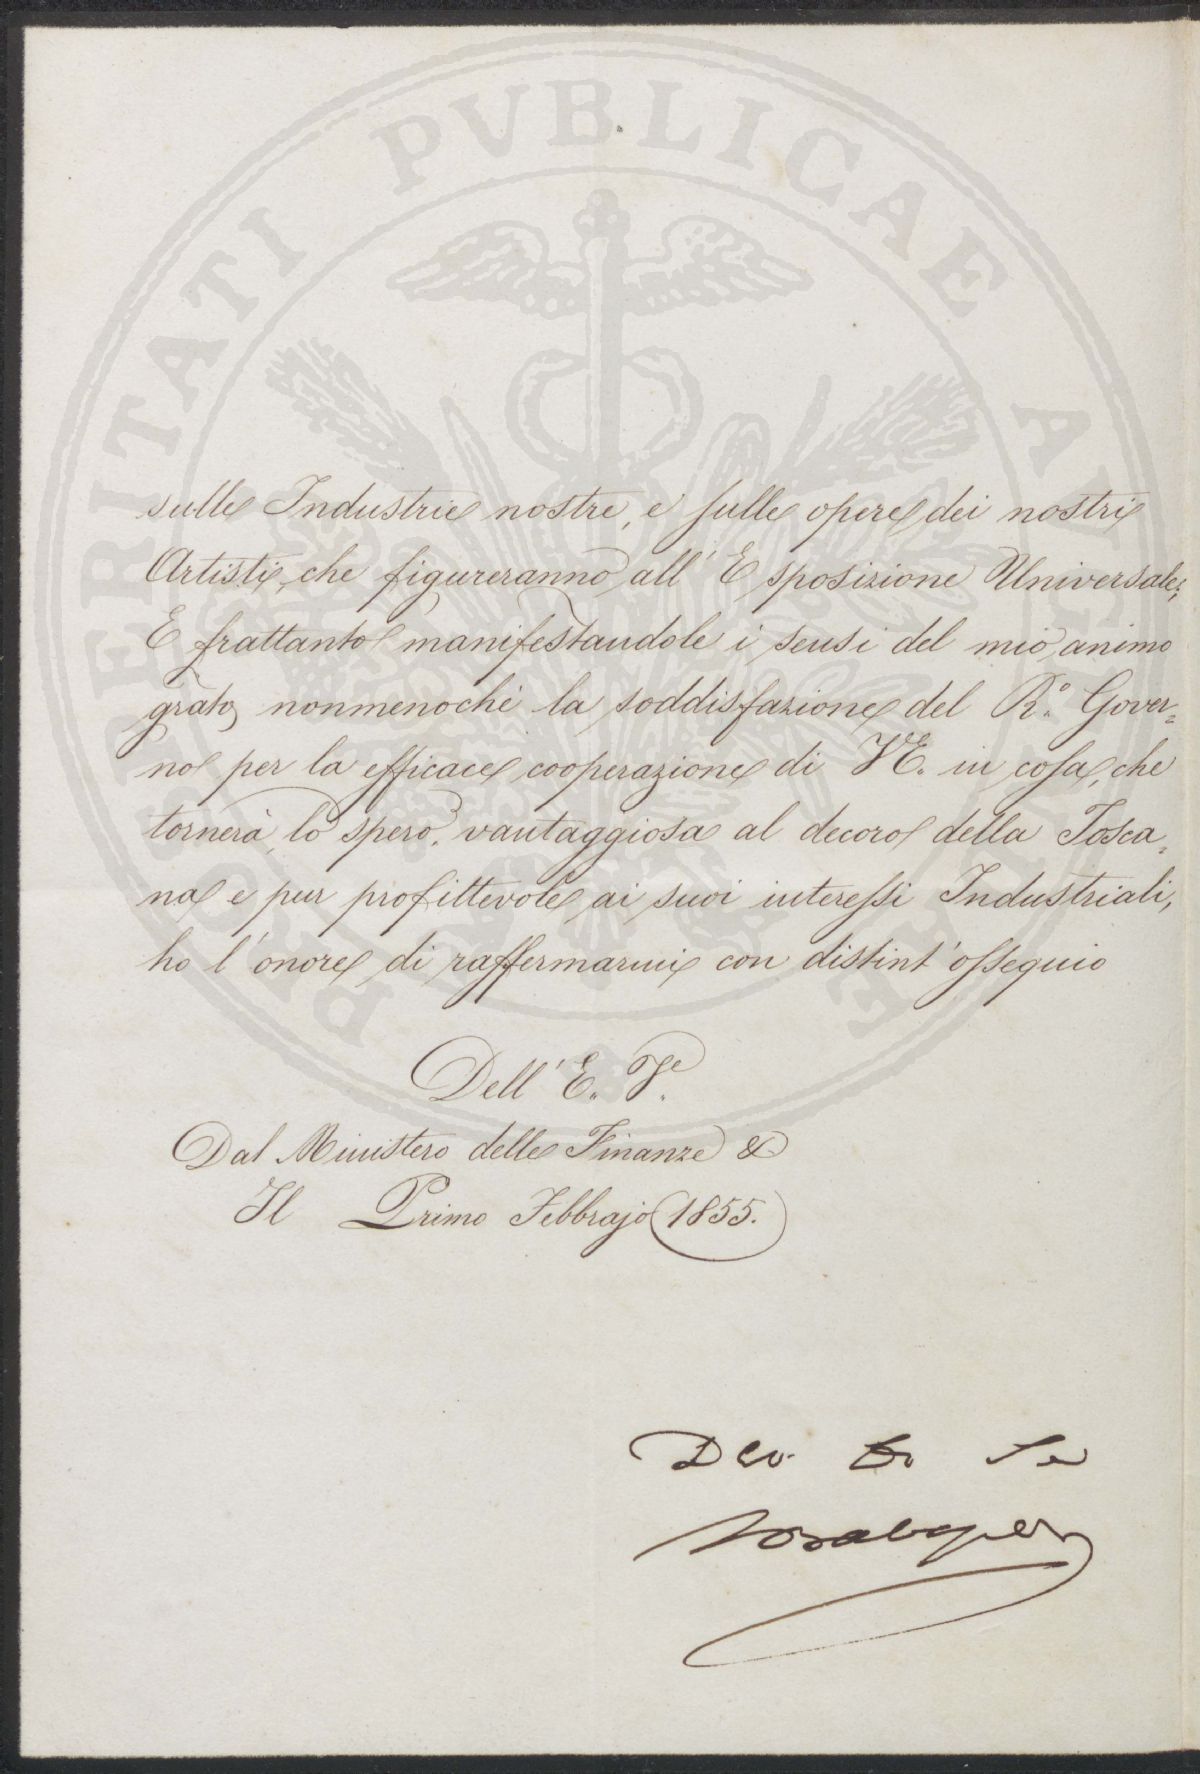 PROSPERITATI PUBLICAE AUGENDAE
sulle Industrie nostre, e sulle opere dei nostri
Artisti, che figureranno all' Esposizione Universale;
E frattanto manifestandole i sensi del mio animo
grato, nonmenochè la soddisfazione del R.º Gover=
no per la efficace cooperazione di V.E. in cosa, che
tornerà, lo spero, vantaggiosa al decoro della Tosca=
na e pur profittevole ai suoi interessi Industriali,
ho l'onore di raffermarmi con distint' ossequio
Dell' E. V.e
Dal Ministero delle Finanze &
Il Primo Febbrajo 1855.
Dev.